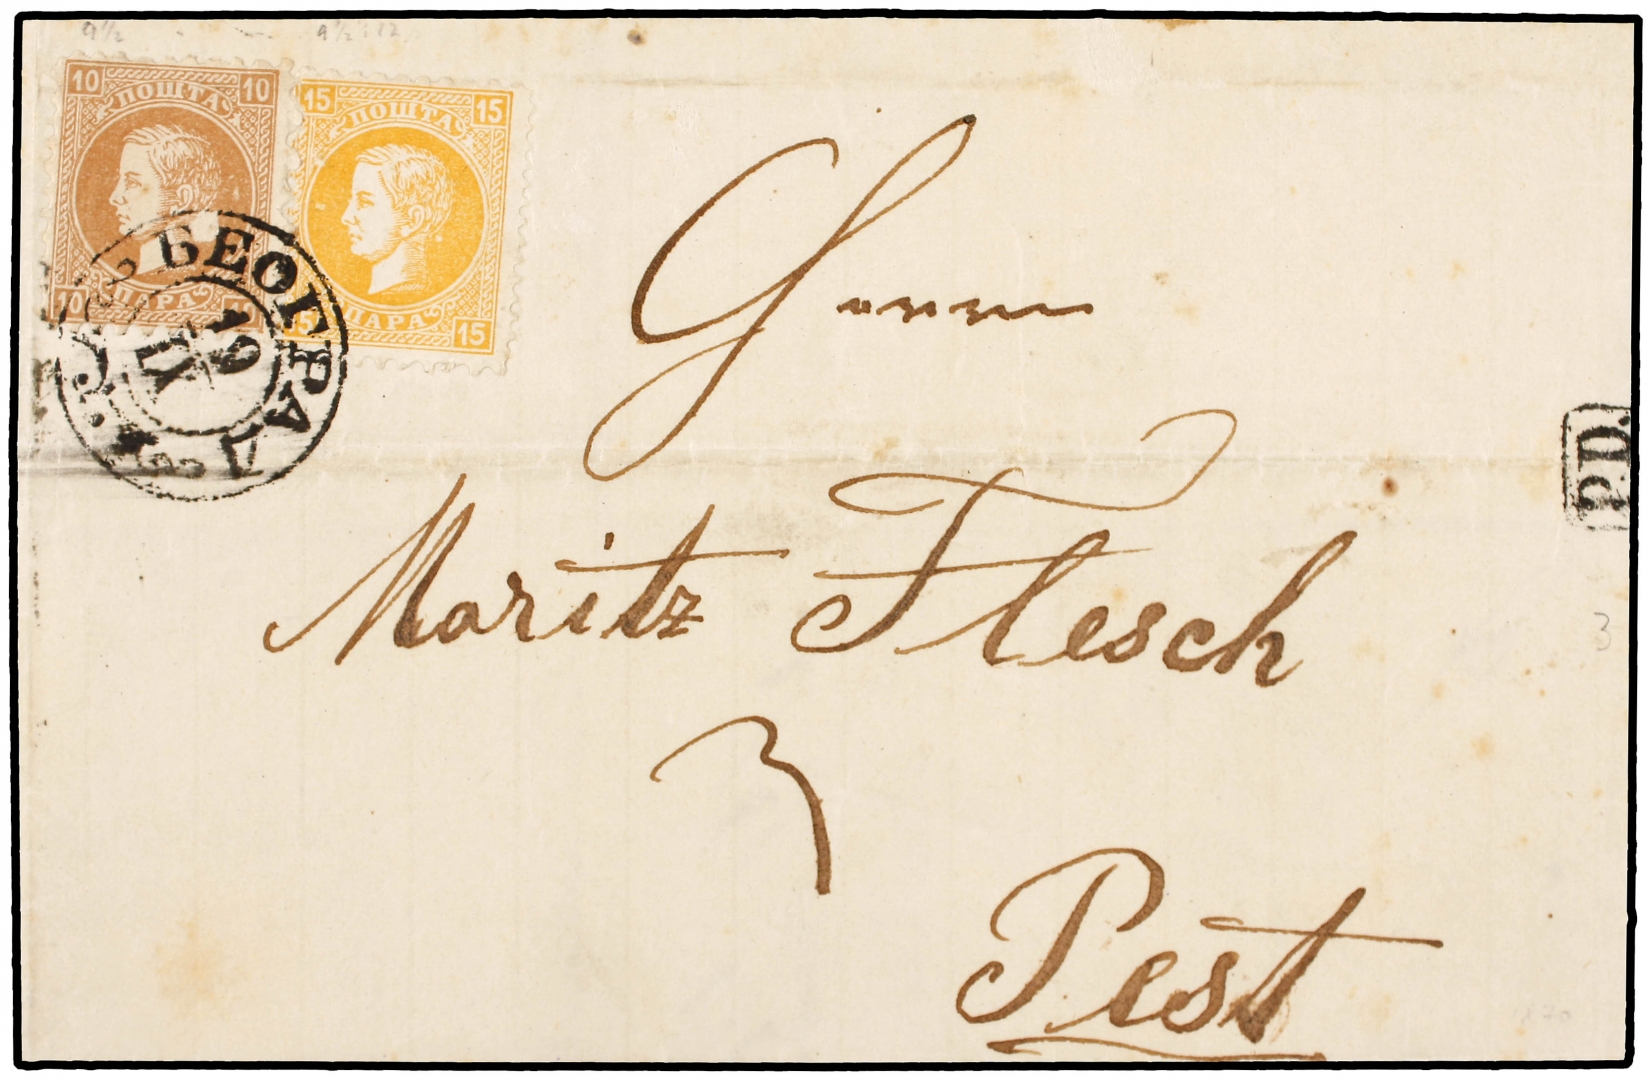 9½ 9½:12
10 10 15 15
ПОШТА ПОШТА
ПАРА ПАРА
10 15
БЕОГРАД
19
IX
Herrn
P.D.
Moritz Flesch
3
Pest
1870